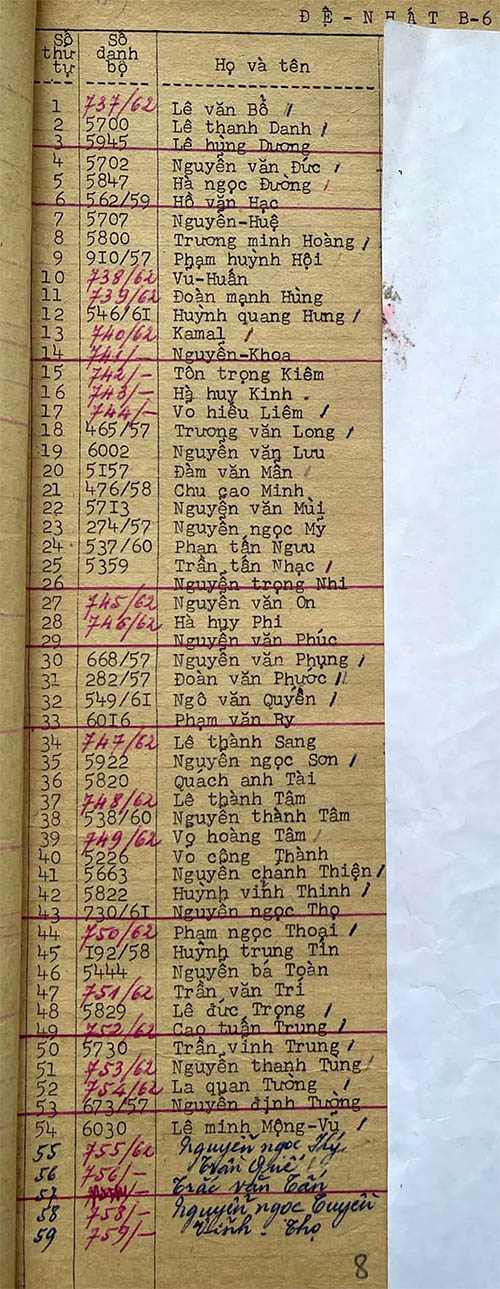 ĐỆ-NHÁT B-6
Số thứ tự Số danh bộ Họ và tên
1 737/62 Lê văn Bồ /
2 5700 Lê thanh Danh /
3 5945 Lê hùng Dương
4 5702 Nguyễn văn Đức /
5 5847 Hà ngọc Đường /
6 562/59 Hồ văn Hạc
7 5707 Nguyễn-Huệ
8 5800 Trương minh Hoàng /
9 9I0/57 Phạm huỳnh Hội /
10 738/62 Vu-Huấn
11 739/62 Đoàn mạnh Hùng
12 546/6I Huỳnh quang Hưng /
13 740/62 Kamal /
14 741/- Nguyễn-Khoa
15 742/- Tôn trọng Kiêm
16 743/- Hà huy Kinh .
17 744/- Vo hiếu Liêm /
18 465/57 Trương văn Long /
19 6002 Nguyễn văn Lưu
20 5I57 Đàm văn Mẫn /
21 476/58 Chu cao Minh
22 57I3 Nguyễn văn Mùi
23 274/57 Nguyễn ngọc Mỹ
24 537/60 Phan tấn Ngưu
25 5359 Trần tấn Nhạc /
26 Nguyễn trọng Nhi
27 745/62 Nguyễn văn On
28 746/62 Hà huy Phi
29 Nguyễn văn Phúc
30 668/57 Nguyễn văn Phụng /
31 282/57 Đoàn văn Phước //
32 549/6I Ngô văn Quyền /
33 60I6 Phạm văn Ry
34 747/62 Lê thành Sang
35 5922 Nguyễn ngọc Sơn /
36 5820 Quách anh Tài
37 748/62 Lê thành Tâm
38 538/60 Nguyễn thành Tâm
39 749/62 Vo hoàng Tâm /
40 5226 Vo công Thành
41 5663 Nguyễn chanh Thiện /
42 5822 Huỳnh vinh Thinh /
43 730/6I Nguyễn ngọc Thọ
44 750/62 Phạm ngọc Thoại /
45 I92/58 Huỳnh trung Tín
46 5444 Nguyễn bá Toàn
47 751/62 Trần văn Trí
48 5829 Lê đức Trọng /
49 752/62 Cao tuấn Trung /
50 5730 Trần vinh Trung /
51 753/62 Nguyễn thanh Tùng /
52 754/62 La quan Tường /
53 673/57 Nguyễn định Tường
54 6030 Lê minh Mộng-Vũ /
55 755/62 Nguyễn ngọc Hỷ
56 756/- Trần Quế
57 /- Trác văn Cân
58 758/- Nguyễn ngọc Tuyền
59 759/- Vĩnh-Thọ
8